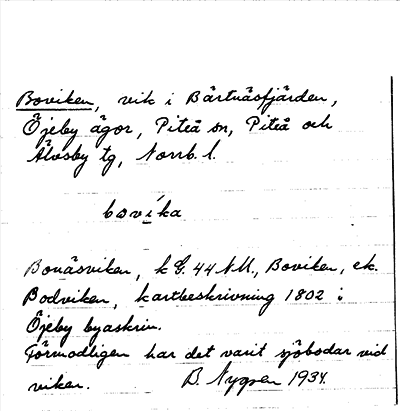 Boviken, vik i Bärtnäsfjärden,
Öjeby ägor, Piteå sn, Piteå och
Älvsby tg, Norrb. l.
bovíka
Bonäsviken, k G. 44 NU., Boviken, ek.
Bodviken, kartbeskrivning 1802 i
Öjeby byaskrin.
Förmodligen har det varit sjöbodar vid
viken. B. Nygren 1934.